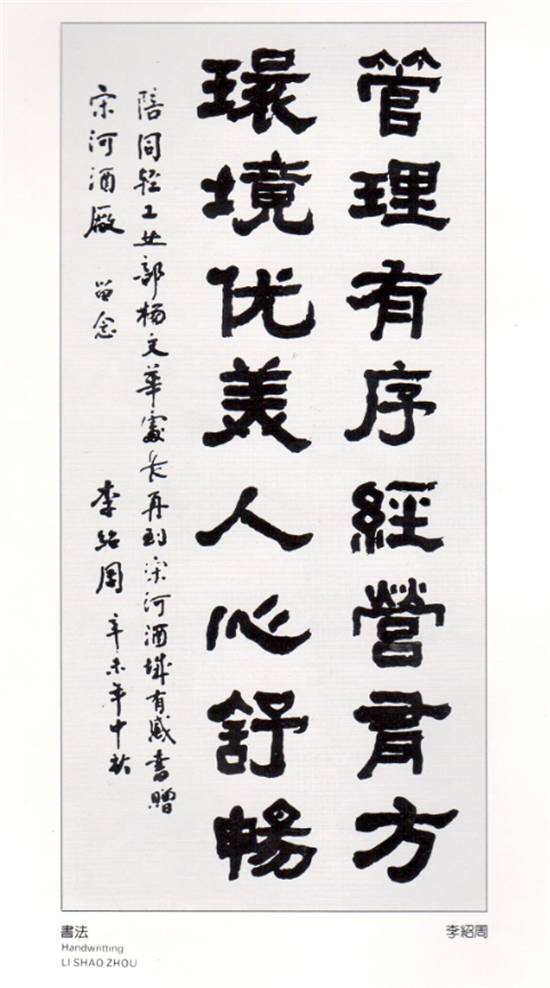 管理有序經營有方
環境优美人心舒暢
陪同轻工业部杨文華處长再到宋河酒城有感書贈
宋河酒厰 留念
李紹周 辛未年中秋
書法
李紹周
Handwritting
LI SHAO ZHOU